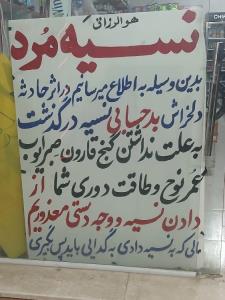 هوالرزاق
نسیه مُرد
بدین وسیله به اطلاع میرسانیم در اثر حادثه
دلخراش بدحسابی نسیه درگذشت
به علت نداشتن گنج قارون، صبر ایوب
عمر نوح و طاقت دوری شما از
دادن نسیه و وجه دستی معذوریم
مالی که به نسیه دادی به گدایی باید پس بگیری